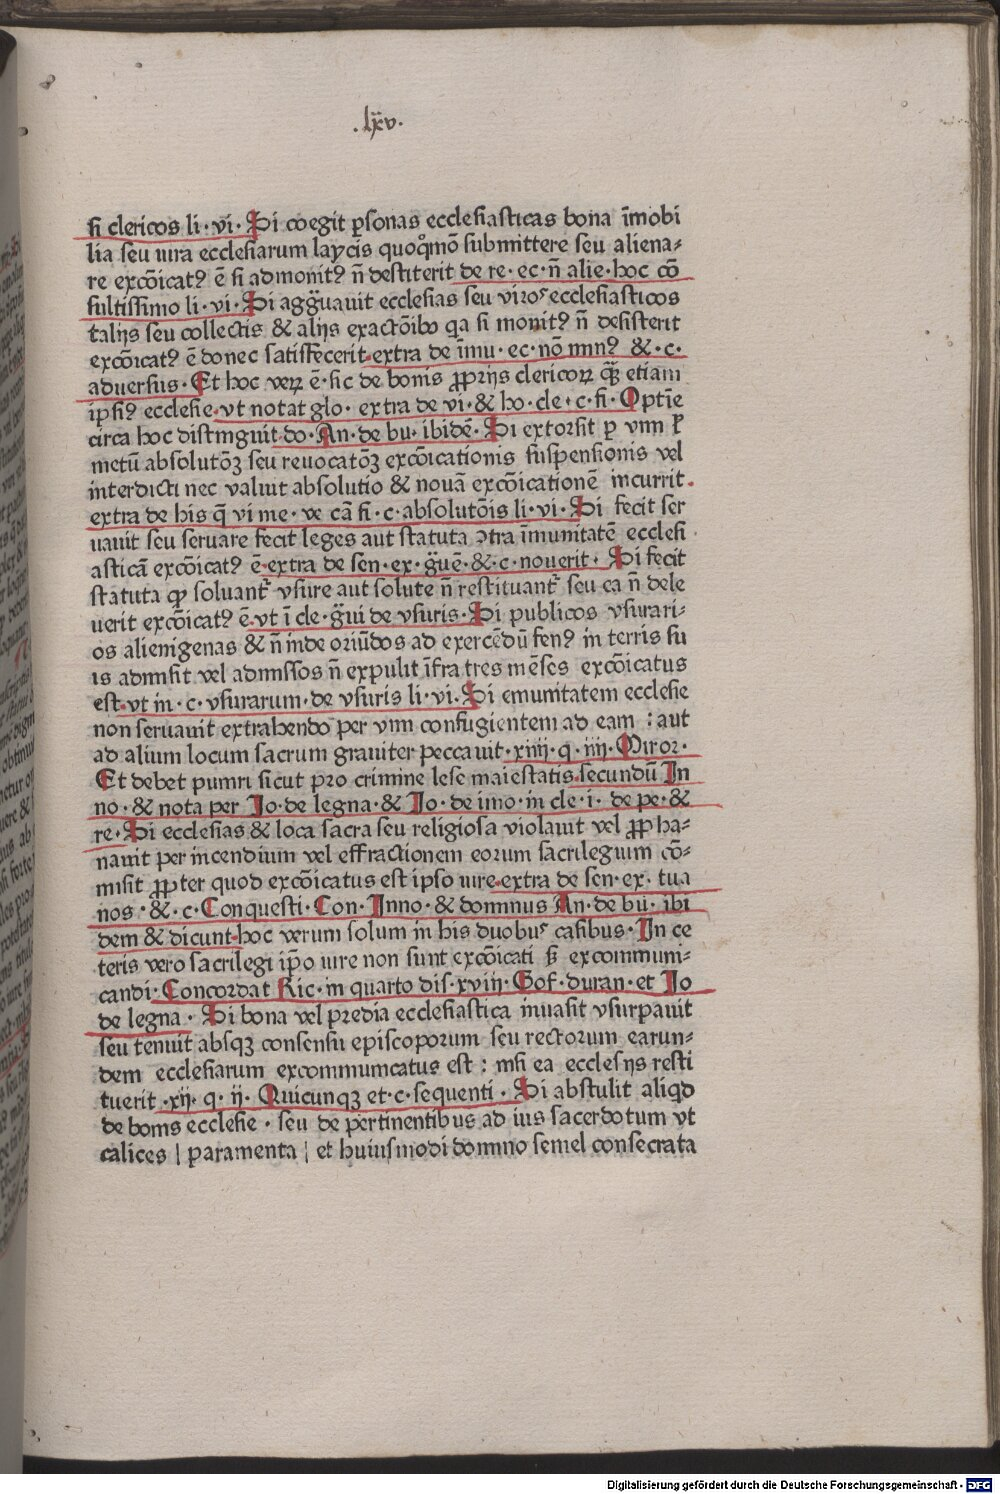 .lxv.
si clericos li·vi· Si coegit ꝑsonas ecclesiasticas bona īmobi
lia seu iura ecclesiarum laycis quoqͦmō submittere seu aliena⸗
re excōicatꝰ ē si admonitꝰ n̄ destiterit de re·ec·n̄ alie·hoc cō
sultissimo li·vi· Si aggͣuauit ecclesias seu viros ecclesiasticos
talijs seu collectis & alijs exactōibꝰ qa si monitꝰ n̄ desisterit
excōicatꝰ ē donec satisfecerit extra de īmu·ec·nō minꝰ &·c·
aduersus· Et hoc veꝝ ē·sic de bonis ꝓprijs clericoꝝ qͣꝫ etiam
ipsiꝰ ecclesie·vt notat glo· extra de vi·& ho·cle·c·fi·Optīe
circa hoc distinguit do·An·de bu·ibidē· Si extorsit ꝑ vim ł
metū absolutōꝫ seu reuocatōꝫ excōicationis suspensionis vel
interdicti nec valuit absolutio & nouā excōicationē incurrit·
extra de his q̄ vi me·ve cā fi·c·absolutōis li·vi· Si fecit ser
uauit seu seruare fecit leges aut statuta ↄtra īmunitatē ecclesi
asticā excōicatꝰ ē·extra de sen·ex·gͣuē·&·c·nouerit· Si fecit
statuta ꝙ soluant᷑ vsure aut solute n̄ restituant᷑ seu ea n̄ dele
uerit excōicatꝰ ē·vt ī cle·gͣui de vsuris· Si publicos vsurari⸗
os alienigenas & n̄ inde oriūdos ad exercēdū fenꝰ in terris su
is admisit vel admissos n̄ expulit īfra tres mēses excōicatus
est·vt in·c·vsurarum·de vsuris li·vi· Si emunitatem ecclesie
non seruauit extrahendo per vim confugientem ad eam : aut
ad alium locum sacrum grauiter peccauit·xiiij·q·iiij·Miror·
Et debet puniri sicut pro crimine lese maiestatis·secundū In
no·& nota per Io·de legna·& Io·de imo·in cle·i· de pe·&
re· Si ecclesias & loca sacra seu religiosa violauit vel ꝓpha⸗
nauit per incendium vel effractionem eorum sacrilegium cō⸗
misit ꝓpter quod excōicatus est ipso iure·extra de sen·ex· tua
nos·&·c·Conquesti·Con·Inno·& dominus An·de bu·ibi
dem & dicunt·hoc verum solum in his duobus casibus·In ce
teris vero sacrilegi ip̄o iure non sunt excōicati sꝫ excommuni⸗
candi·Concordat Ric·in quarto dis·xviij·Gof·duran·et Io
de legna· Si bona vel predia ecclesiastica inuasit vsurpauit
seu tenuit absqꝫ consensu episcoporum seu rectorum earun⸗
dem ecclesiarum excommunicatus est : nisi ea ecclesijs resti
tuerit·xij·q·ij·Quicunqꝫ et·c·sequenti· Si abstulit aliqd
de bonis ecclesie· seu de pertinentibus ad ius sacerdotum vt
calices | paramenta | et huiusmodi domino semel consecrata
Digitalisierung gefördert durch die Deutsche Forschungsgemeinschaft - DFG